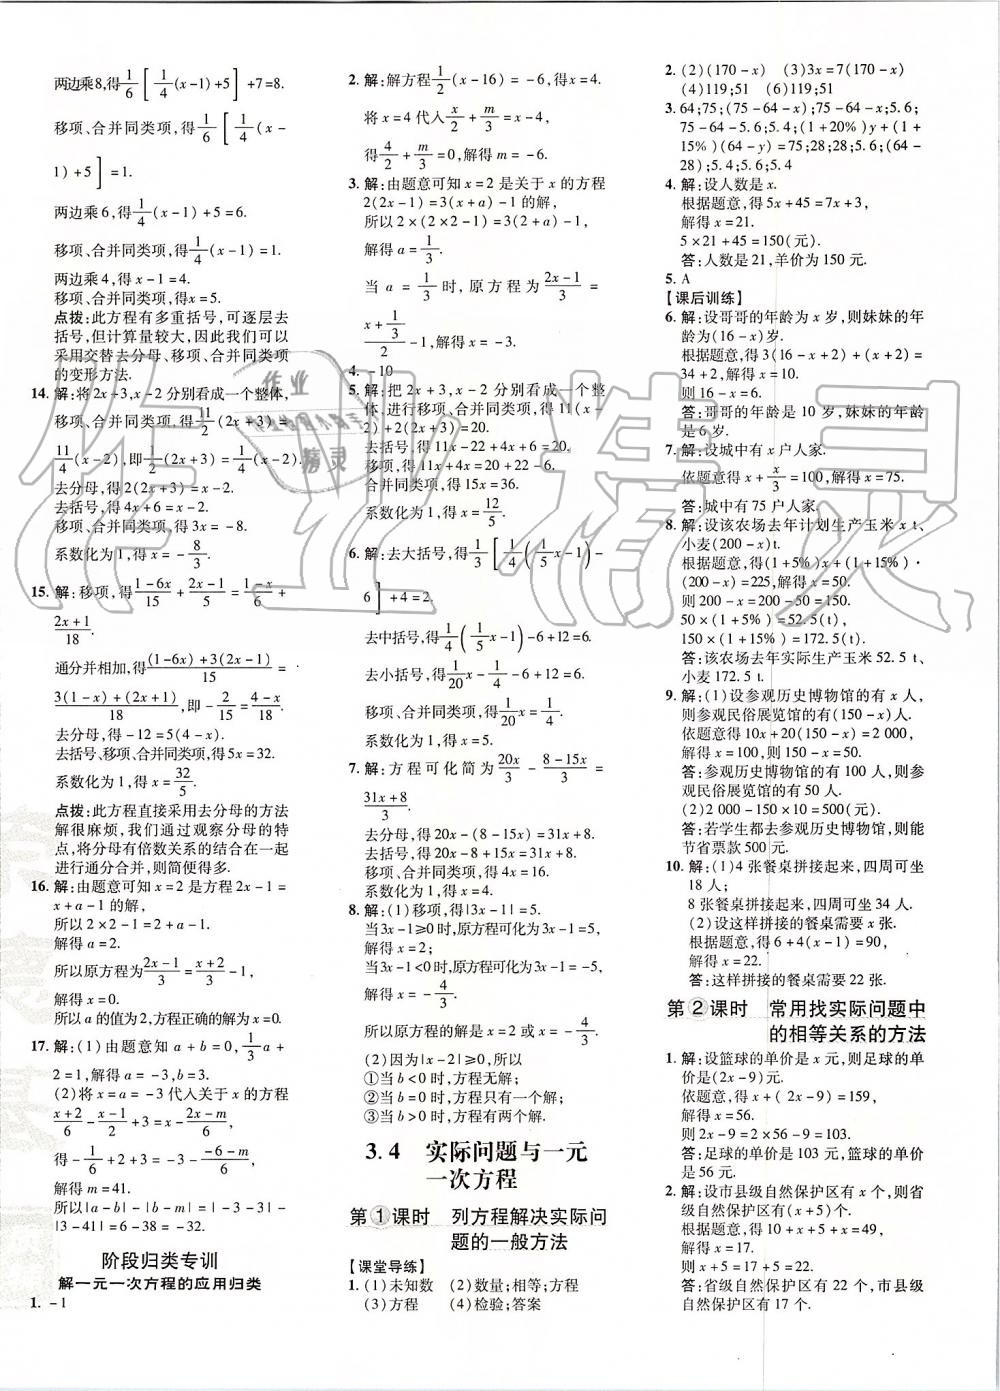 两边乘8,得1/6[1/4(x-1)+5]+7=8.
移项、合并同类项,得1/6[1/4(x-
1)+5]=1.
两边乘6,得1/4(x-1)+5=6.
移项、合并同类项,得1/4(x-1)=1.
两边乘4,得x-1=4.
移项、合并同类项,得x=5.
点拨:此方程有多重括号,可逐层去
括号,但计算量较大,因此我们可以
采用交替去分母、移项、合并同类项
的变形方法.
14. 解:将2x+3,x-2分别看成一个整体,
移项、合并同类项,得11/2(2x+3)=
11/4(x-2),即1/2(2x+3)=1/4(x-2).
去分母,得2(2x+3)=x-2.
去括号,得4x+6=x-2.
移项、合并同类项,得3x=-8.
系数化为1,得x=-8/3.
15. 解:移项,得(1-6x)/15+(2x-1)/5=(1-x)/6+
(2x+1)/18.
通分并相加,得((1-6x)+3(2x-1))/15=
(3(1-x)+(2x+1))/18,即-2/15=(4-x)/18.
去分母,得-12=5(4-x).
去括号、移项、合并同类项,得5x=32.
系数化为1,得x=32/5.
点拨:此方程直接采用去分母的方法
解很麻烦,我们通过观察分母的特
点,将分母有倍数关系的结合在一起
进行通分合并,则简便得多.
16. 解:由题意可知x=2是方程2x-1=
x+a-1的解,
所以2×2-1=2+a-1.
解得a=2.
所以原方程为(2x-1)/3=(x+2)/3-1,
解得x=0.
所以a的值为2,方程正确的解为x=0.
17. 解:(1)由题意知a+b=0,1/3a+
2=1,解得a=-3,b=3.
(2)将x=a=-3代入关于x的方程
(x+2)/6-(x-1)/2+3=x-(2x-m)/6,
得-1/6+2+3=-3-(-6-m)/6,
解得m=41.
所以|a-b|-|b-m|=|-3-3|-
|3-41|=6-38=-32.
阶段归类专训
解一元一次方程的应用归类
1. -1
2. 解:解方程1/2(x-16)=-6,得x=4.
将x=4代入x/2+m/3=x-4,
得4/2+m/3=0,解得m=-6.
3. 解:由题意可知x=2是关于x的方程
2(2x-1)=3(x+a)-1的解,
所以2×(2×2-1)=3(2+a)-1,
解得a=1/3.
当a=1/3时,原方程为(2x-1)/3=
(x+1/3)/2-1,解得x=-3.
4. -10
5. 解:把2x+3,x-2分别看成一个整
体,进行移项、合并同类项,得11(x
-2)+2(2x+3)=20.
去括号,得11x-22+4x+6=20.
移项,得11x+4x=20+22-6.
合并同类项,得15x=36.
系数化为1,得x=12/5.
6. 解:去大括号,得1/3[1/4(1/5x-1)-
6]+4=2.
去中括号,得1/4(1/5x-1)-6+12=6.
去小括号,得1/20x-1/4-6+12=6.
移项、合并同类项,得1/20x=1/4.
系数化为1,得x=5.
7. 解:方程可化简为20x/3-(8-15x)/3=
(31x+8)/3.
去分母,得20x-(8-15x)=31x+8.
去括号,得20x-8+15x=31x+8.
移项、合并同类项,得4x=16.
系数化为1,得x=4.
8. 解:(1)移项,得|3x-1|=5.
当3x-1≥0时,原方程可化为3x-1=5,
解得x=2;
当3x-1<0时,原方程可化为3x-1=-5,
解得x=-4/3.
所以原方程的解是x=2或x=-4/3.
(2)因为|x-2|≥0,所以
①当b<0时,方程无解;
②当b=0时,方程只有一个解;
③当b>0时,方程有两个解.
3.4 实际问题与一元
一次方程
第①课时 列方程解决实际问
题的一般方法
【课堂导练】
1. (1)未知数 (2)数量;相等;方程
(3)方程 (4)检验;答案
2. (2)(170-x) (3)3x=7(170-x)
(4)119;51 (6)119;51
3. 64;75;(75-64-x);75-64-x;5.6;
75-64-5.6;5.4;(1+20%)y+(1+
15%)(64-y)=75;28;28;5.6;(64-
28);5.4;5.6;5.4
4. 解:设人数是x.
根据题意,得5x+45=7x+3,
解得x=21.
5×21+45=150(元).
答:人数是21,羊价为150元.
5. A
【课后训练】
6. 解:设哥哥的年龄为x岁,则妹妹的年
龄为(16-x)岁.
根据题意,得3(16-x+2)+(x+2)=
34+2,解得x=10.
则16-x=6.
答:哥哥的年龄是10岁,妹妹的年龄
是6岁.
7. 解:设城中有x户人家.
依题意得x+x/3=100,解得x=75.
答:城中有75户人家.
8. 解:设该农场去年计划生产玉米x t,
小麦(200-x)t.
根据题意,得(1+5%)x+(1+15%)·
(200-x)=225,解得x=50.
则200-x=200-50=150.
50×(1+5%)=52.5(t),
150×(1+15%)=172.5(t).
答:该农场去年实际生产玉米52.5 t、
小麦172.5 t.
9. 解:(1)设参观历史博物馆的有x人,
则参观民俗展览馆的有(150-x)人.
依题意得10x+20(150-x)=2 000,
解得x=100,则150-x=50.
答:参观历史博物馆的有100人,则参
观民俗展览馆的有50人.
(2)2 000-150×10=500(元).
答:若学生都去参观历史博物馆,则能
节省票款500元.
10. 解:(1)4张餐桌拼接起来,四周可坐
18人;
8张餐桌拼接起来,四周可坐34人.
(2)设这样拼接的餐桌需要x张.
根据题意,得6+4(x-1)=90,
解得x=22.
答:这样拼接的餐桌需要22张.
第②课时 常用找实际问题中
的相等关系的方法
1. 解:设篮球的单价是x元,则足球的单
价是(2x-9)元.
依题意,得x+(2x-9)=159,
解得x=56.
则2x-9=2×56-9=103.
答:足球的单价是103元,篮球的单价
是56元.
2. 解:设市县级自然保护区有x个,则省
级自然保护区有(x+5)个.
根据题意,得10+x+5+x=49,
解得x=17.
则x+5=17+5=22.
答:省级自然保护区有22个,市县级
自然保护区有17个.
作业精灵